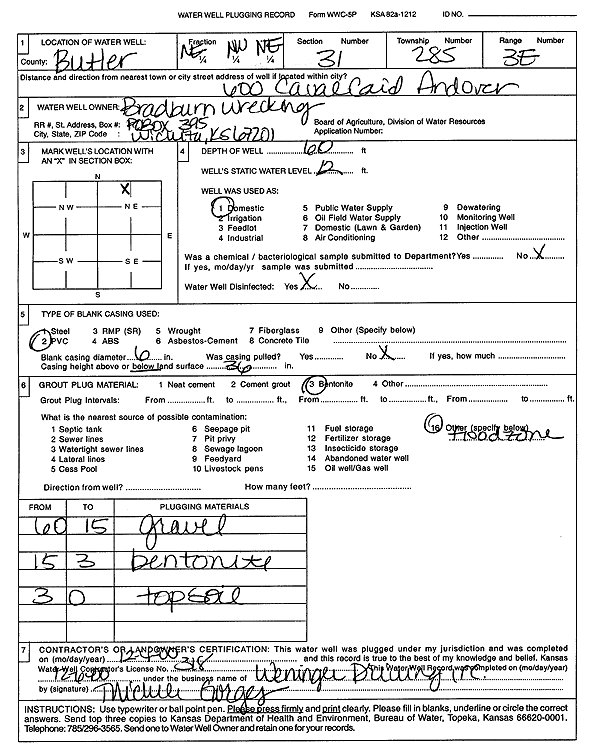 WATER WELL PLUGGING RECORD Form WWC-5P KSA 82a-1212 ID NO.
1 LOCATION OF WATER WELL: Fraction Section Township Range
County: Butler NE ¼ NW ¼ NE ¼ 31 285 3E
Distance and direction from nearest town or city street address of well if located within city?
600 Andover
2 WATER WELL OWNER: Bradburn Wrecking
RR #, St. Address, Box #: PO BOX 395 Board of Agriculture, Division of Water Resources
City, State, ZIP Code : Wichita, KS 67201 Application Number:
3 MARK WELL'S LOCATION WITH AN "X" IN SECTION BOX:
N
X
NW NE
W E
SW SE
S
4 DEPTH OF WELL 60 ft
WELL'S STATIC WATER LEVEL 12 ft.
WELL WAS USED AS:
1 Domestic 5 Public Water Supply 9 Dewatering
2 Irrigation 6 Oil Field Water Supply 10 Monitoring Well
3 Feedlot 7 Domestic (Lawn & Garden) 11 Injection Well
4 Industrial 8 Air Conditioning 12 Other
Was a chemical / bacteriological sample submitted to Department? Yes No X
If yes, mo/day/yr sample was submitted
Water Well Disinfected: Yes X No
5 TYPE OF BLANK CASING USED:
1 Steel 3 RMP (SR) 5 Wrought 7 Fiberglass 9 Other (Specify below)
2 PVC 4 ABS 6 Asbestos-Cement 8 Concrete Tile
Blank casing diameter 6 in. Was casing pulled? Yes No X If yes, how much
Casing height above or below land surface 36 in.
6 GROUT PLUG MATERIAL: 1 Neat cement 2 Cement grout 3 Bentonite 4 Other
Grout Plug Intervals: From ft. to ft., From ft. to ft., From to ft.
What is the nearest source of possible contamination:
1 Septic tank 6 Seepage pit 11 Fuel storage 16 Other (specify below)
2 Sewer lines 7 Pit privy 12 Fertilizer storage Flood zone
3 Watertight sewer lines 8 Sewage lagoon 13 Insecticide storage
4 Lateral lines 9 Feedyard 14 Abandoned water well
5 Cess Pool 10 Livestock pens 15 Oil well/Gas well
Direction from well? How many feet?
FROM TO PLUGGING MATERIALS
60 15 gravel
15 3 bentonite
3 0 topsoil
7 CONTRACTOR'S OR LANDOWNER'S CERTIFICATION: This water well was plugged under my jurisdiction and was completed
on (mo/day/year) and this record is true to the best of my knowledge and belief. Kansas
Water Well Contractor's License No. 318 This Water Well Record was completed on (mo/day/year)
under the business name of Weninger Drilling Inc.
by (signature) Michele Gorges
INSTRUCTIONS: Use typewriter or ball point pen. Please press firmly and print clearly. Please fill in blanks, underline or circle the correct
answers. Send top three copies to Kansas Department of Health and Environment, Bureau of Water, Topeka, Kansas 66620-0001.
Telephone: 785/296-3565. Send one to Water Well Owner and retain one for your records.